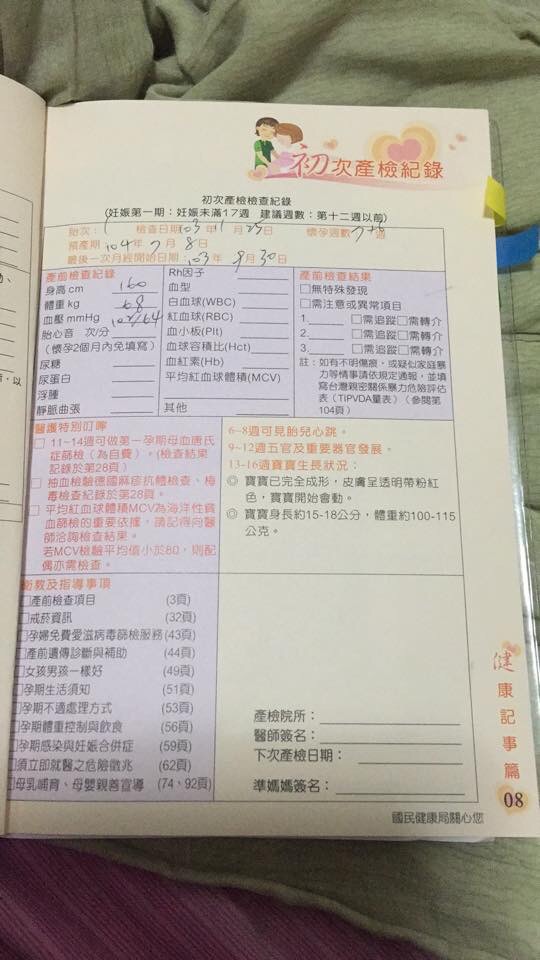 初次產檢紀錄
初次產檢檢查紀錄
(妊娠第一期：妊娠未滿17週 建議週數：第十二週以前)
胎次：1 檢查日期：103年11月25日 懷孕週數：7+8
預產期：104年7月8日
最後一次月經開始日期：103年9月30日
產前檢查紀錄
身高 cm 160
體重 kg 68
血壓 mmHg 107/64
胎心音 次/分
(懷孕2個月內免填寫)
尿糖
尿蛋白
浮腫
靜脈曲張
Rh因子
血型
白血球(WBC)
紅血球(RBC)
血小板(Plt)
血球容積比(Hct)
血紅素(Hb)
平均紅血球體積(MCV)
其他
產前檢查結果
□無特殊發現
□需注意或異常項目
1. □需追蹤□需轉介
2. □需追蹤□需轉介
3. □需追蹤□需轉介
註：如有不明傷痕，或疑似家庭暴
力等情事請依規定通報，並填
寫台灣親密關係暴力危險評估
表（TIPVDA量表）（參閱第
104頁）
醫護特別叮嚀
□ 11~14週可做第一孕期母血唐氏
症篩檢（為自費），(檢查結果
記錄於第28頁)
□ 抽血檢驗德國麻疹抗體檢查、梅
毒檢查紀錄於第28頁。
□ 平均紅血球體積MCV為海洋性貧
血篩檢的重要依據，請記得向醫
師洽詢檢查結果。
若MCV檢驗平均值小於80，則配
偶亦需檢查。
6~8週可見胎兒心跳。
9~12週五官及重要器官發展。
13-16週寶寶生長狀況：
◎ 寶寶已完全成形，皮膚呈透明帶粉紅
色，寶寶開始會動。
◎ 寶寶身長約15-18公分，體重約100-115
公克。
衛教及指導事項
□產前檢查項目 (3頁)
□戒菸資訊 (32頁)
□孕婦免費愛滋病毒篩檢服務 (43頁)
□產前遺傳診斷與補助 (44頁)
□女孩男孩一樣好 (49頁)
□孕期生活須知 (51頁)
□孕期不適處理方式 (53頁)
□孕期體重控制與飲食 (56頁)
□孕期感染與妊娠合併症 (59頁)
□須立即就醫之危險徵兆 (62頁)
□母乳哺育、母嬰親善宣導 (74、92頁)
產檢院所：
醫師簽名：
下次產檢日期：
準媽媽簽名：
健康記事篇
08
國民健康局關心您